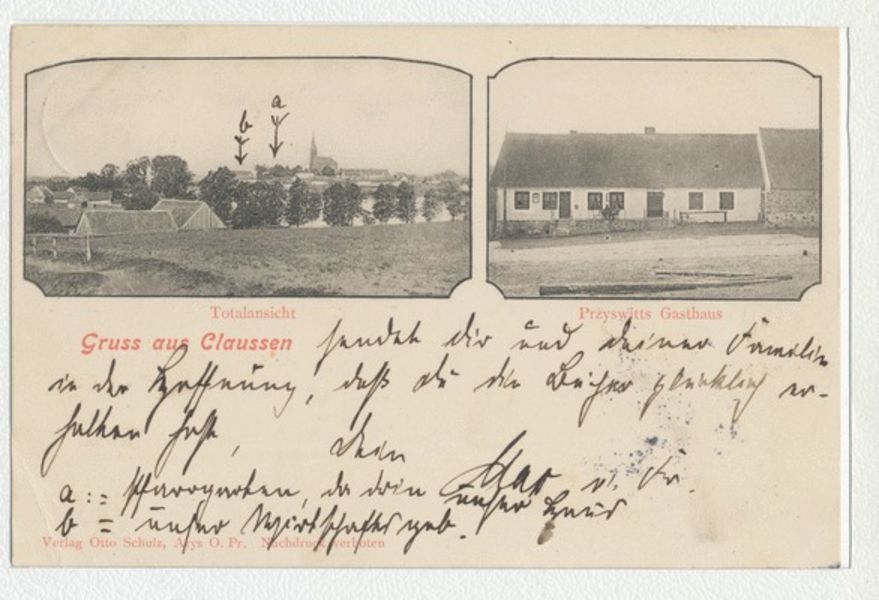 b a
Totalansicht
Przyswitts Gasthaus
Gruss aus Claussen sendet dir und deiner Familie
in der Hoffnung, daß du die Bücher glücklich er-
halten hast,
Dein
a := Pfarrgarten, da drin unser Haus
b = unser Wirtschaftsgeb.
Verlag Otto Schulz, Arys O. Pr. Nachdruck verboten